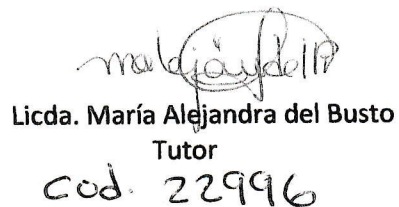 Licda. María Alejandra del Busto
Tutor
Cod. 22996